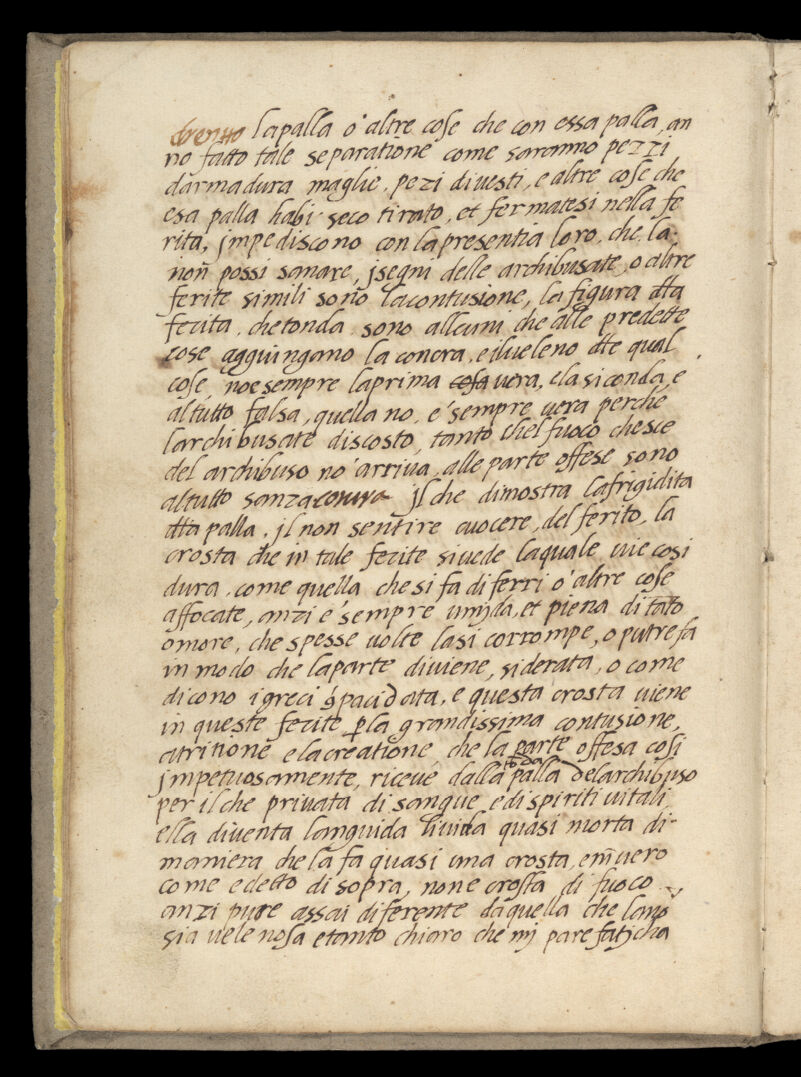 drento la palla o' altre cose che con essa palla, an
no fatto tale separatione come saranno pezzi
darmadura maglie, pezi di vesti, e altre cose che
esa palla habi seco tirato, et fermatesi nella fe
rita, jmpediscono con la presentia loro, che la
non possi sanare, j segni delle archibusate, o altre
ferite simili sono la contusione, la figura dtta
ferita, che tonda sono alcuni che alle predette
cose aggiungano la concra, e il veleno dtte qual
cose noe sempre la prima cosa vera, e la siconda, e
al tutto falsa, quella no, e' sempre vera perche
l archibusate discosto, tanto chel fuoco che sce
del archibuso no' arriva, alle parte offese sono
al tutto sanza jl che dimostra la frigidita
dtta palla, jl non sentire cuocere, del ferito, la
crosta che in tale ferite si vede la quale, nie cosi
dura, come quella che si fa di ferri o' altre cose
affocate, anzi e' sempre umjda, et piena di tato
omore, che spesse volte la si corrompe, o putrefa
in modo che la parte diviene, siderata, o come
dicono i greci e questa crosta viene
in queste ferite p la grandissima contusione,
atritione e la creatione, che la parte offesa cosi
jmpetuosamente, riceve dalla palla del archibuso
per il che privata di sangue, e di spiriti vitali
ella diventa languida livida quasi morta di-
maniera che la fa quasi una crosta, em̃ vero
come e detto di sopra, none crosta di fuoco
anzi pure assai diferente da quella che lano
sia velenosa e tanto chiaro che mj pare fatjcha